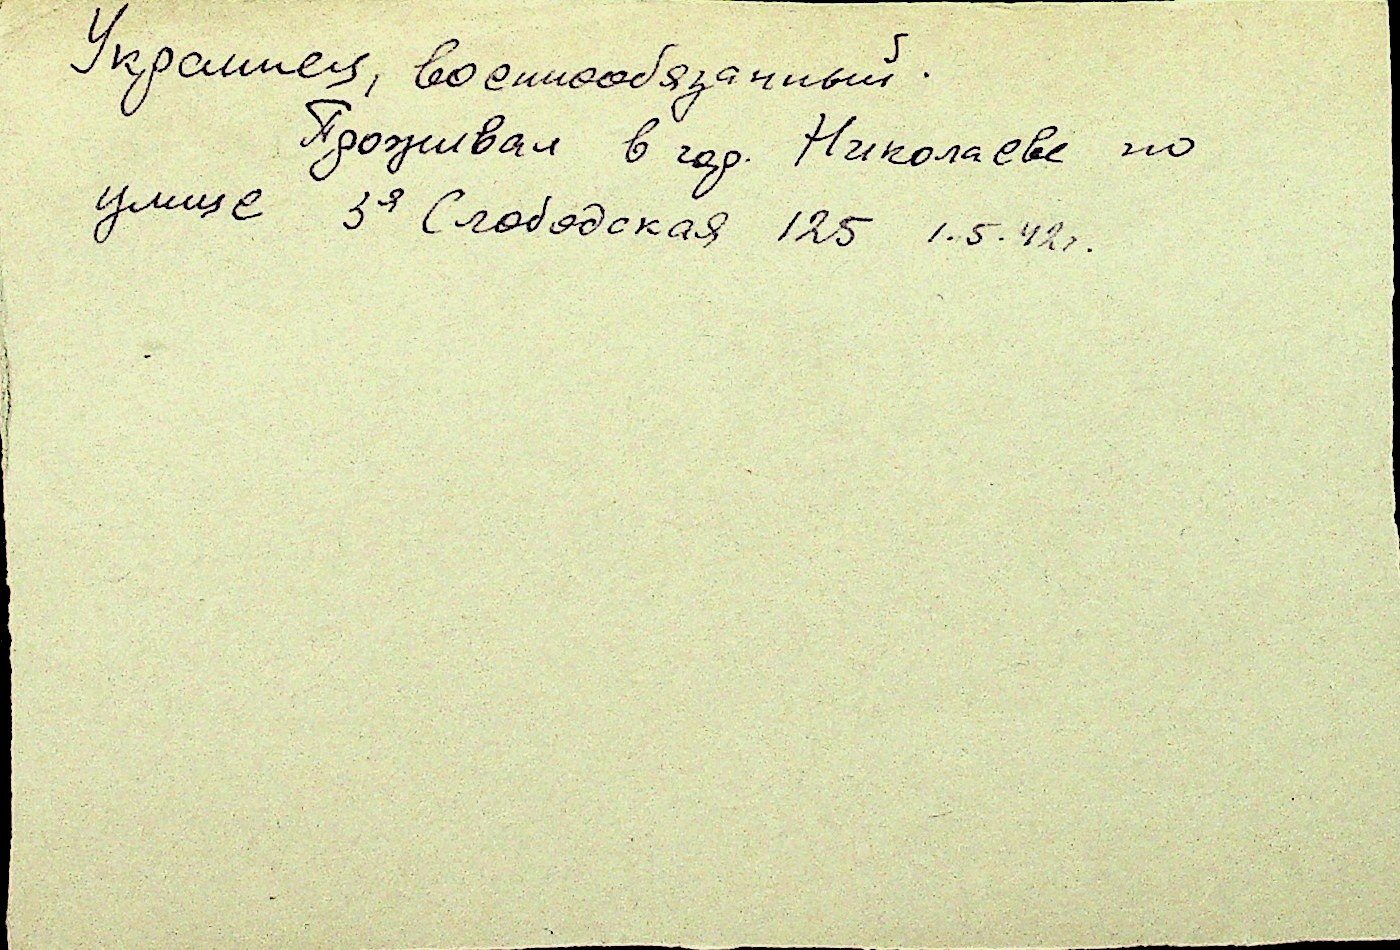 Украинец, военнообязанный.
Проживал в гор. Николаеве по
улице 3я Слободская 125 1.5.42г.